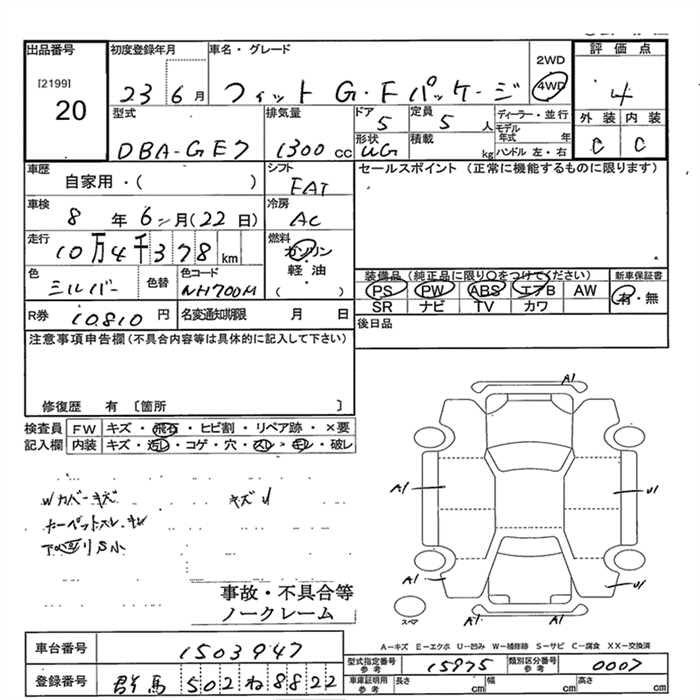 出品番号 初度登録年月 車名・グレード 2WD 評価点
[2199] 20 23 6月 フィット G・Fパッケージ 4WD 4
型式 排気量 ドア 定員 ディーラー・並行 外装 内装
DBA-GE7 1300cc 5 5人 モデル年式 年 C C
形状 積載 ハンドル 左・右
UG kg
車歴 シフト セールスポイント(正常に機能するものに限ります)
自家用・( ) FAT
車検 冷房
8年6月(22日) AC
走行 燃料
10万4千378km ガソリン
軽油
( )
色 色替 色コード 装備品(純正品に限り○をつけてください) 新車保証書
シルバー NH700M PS PW ABS エアB AW 有・無
SR ナビ TV カワ
R券 10810円 名変通知期限 月 日 後日品
注意事項申告欄(不具合内容等は具体的に記入して下さい)
修復歴 有〔箇所 〕
検査員 FW キズ・飛石・ヒビ割・リペア跡・×要
記入欄 内装 キズ・汚レ・コゲ・穴・スレ・キレ・破レ
Wカバーキズ キズU
カーペットスレ・キレ
下回りS小
A1
A1 U1
A1 U1
A1 A1
スペア
事故・不具合等
ノークレーム
A-キズ E-エクボ U-凹み W-補修跡 S-サビ C-腐食 XX-交換済
車台番号 1503947
型式指定番号 参考 15975 類別区分番号 参考 0007
登録番号 群馬 502 ね 8822
車庫証明用 参考 長さ cm 幅 cm 高さ cm